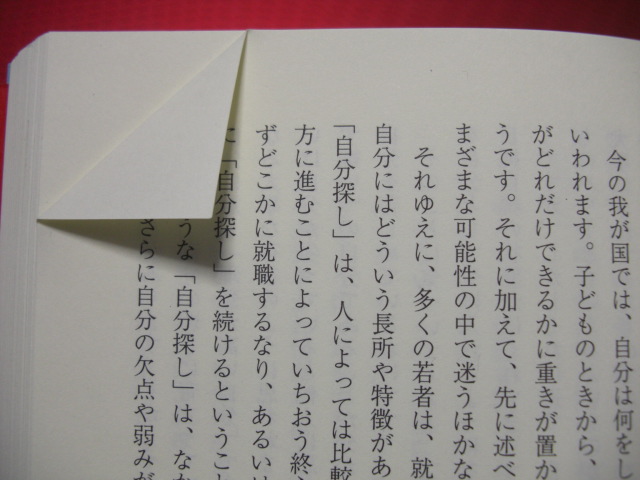 今の我が国では、自分は何をし
いわれます。子どものときから、
がどれだけできるかに重きが置か
うです。それに加えて、先に述べ
まざまな可能性の中で迷うほかな
それゆえに、多くの若者は、就
自分にはどういう長所や特徴があ
「自分探し」は、人によっては比較
方に進むことによっていちおう終
ずどこかに就職するなり、あるいは
に「自分探し」を続けるということ
うな「自分探し」は、なか
さらに自分の欠点や弱みが